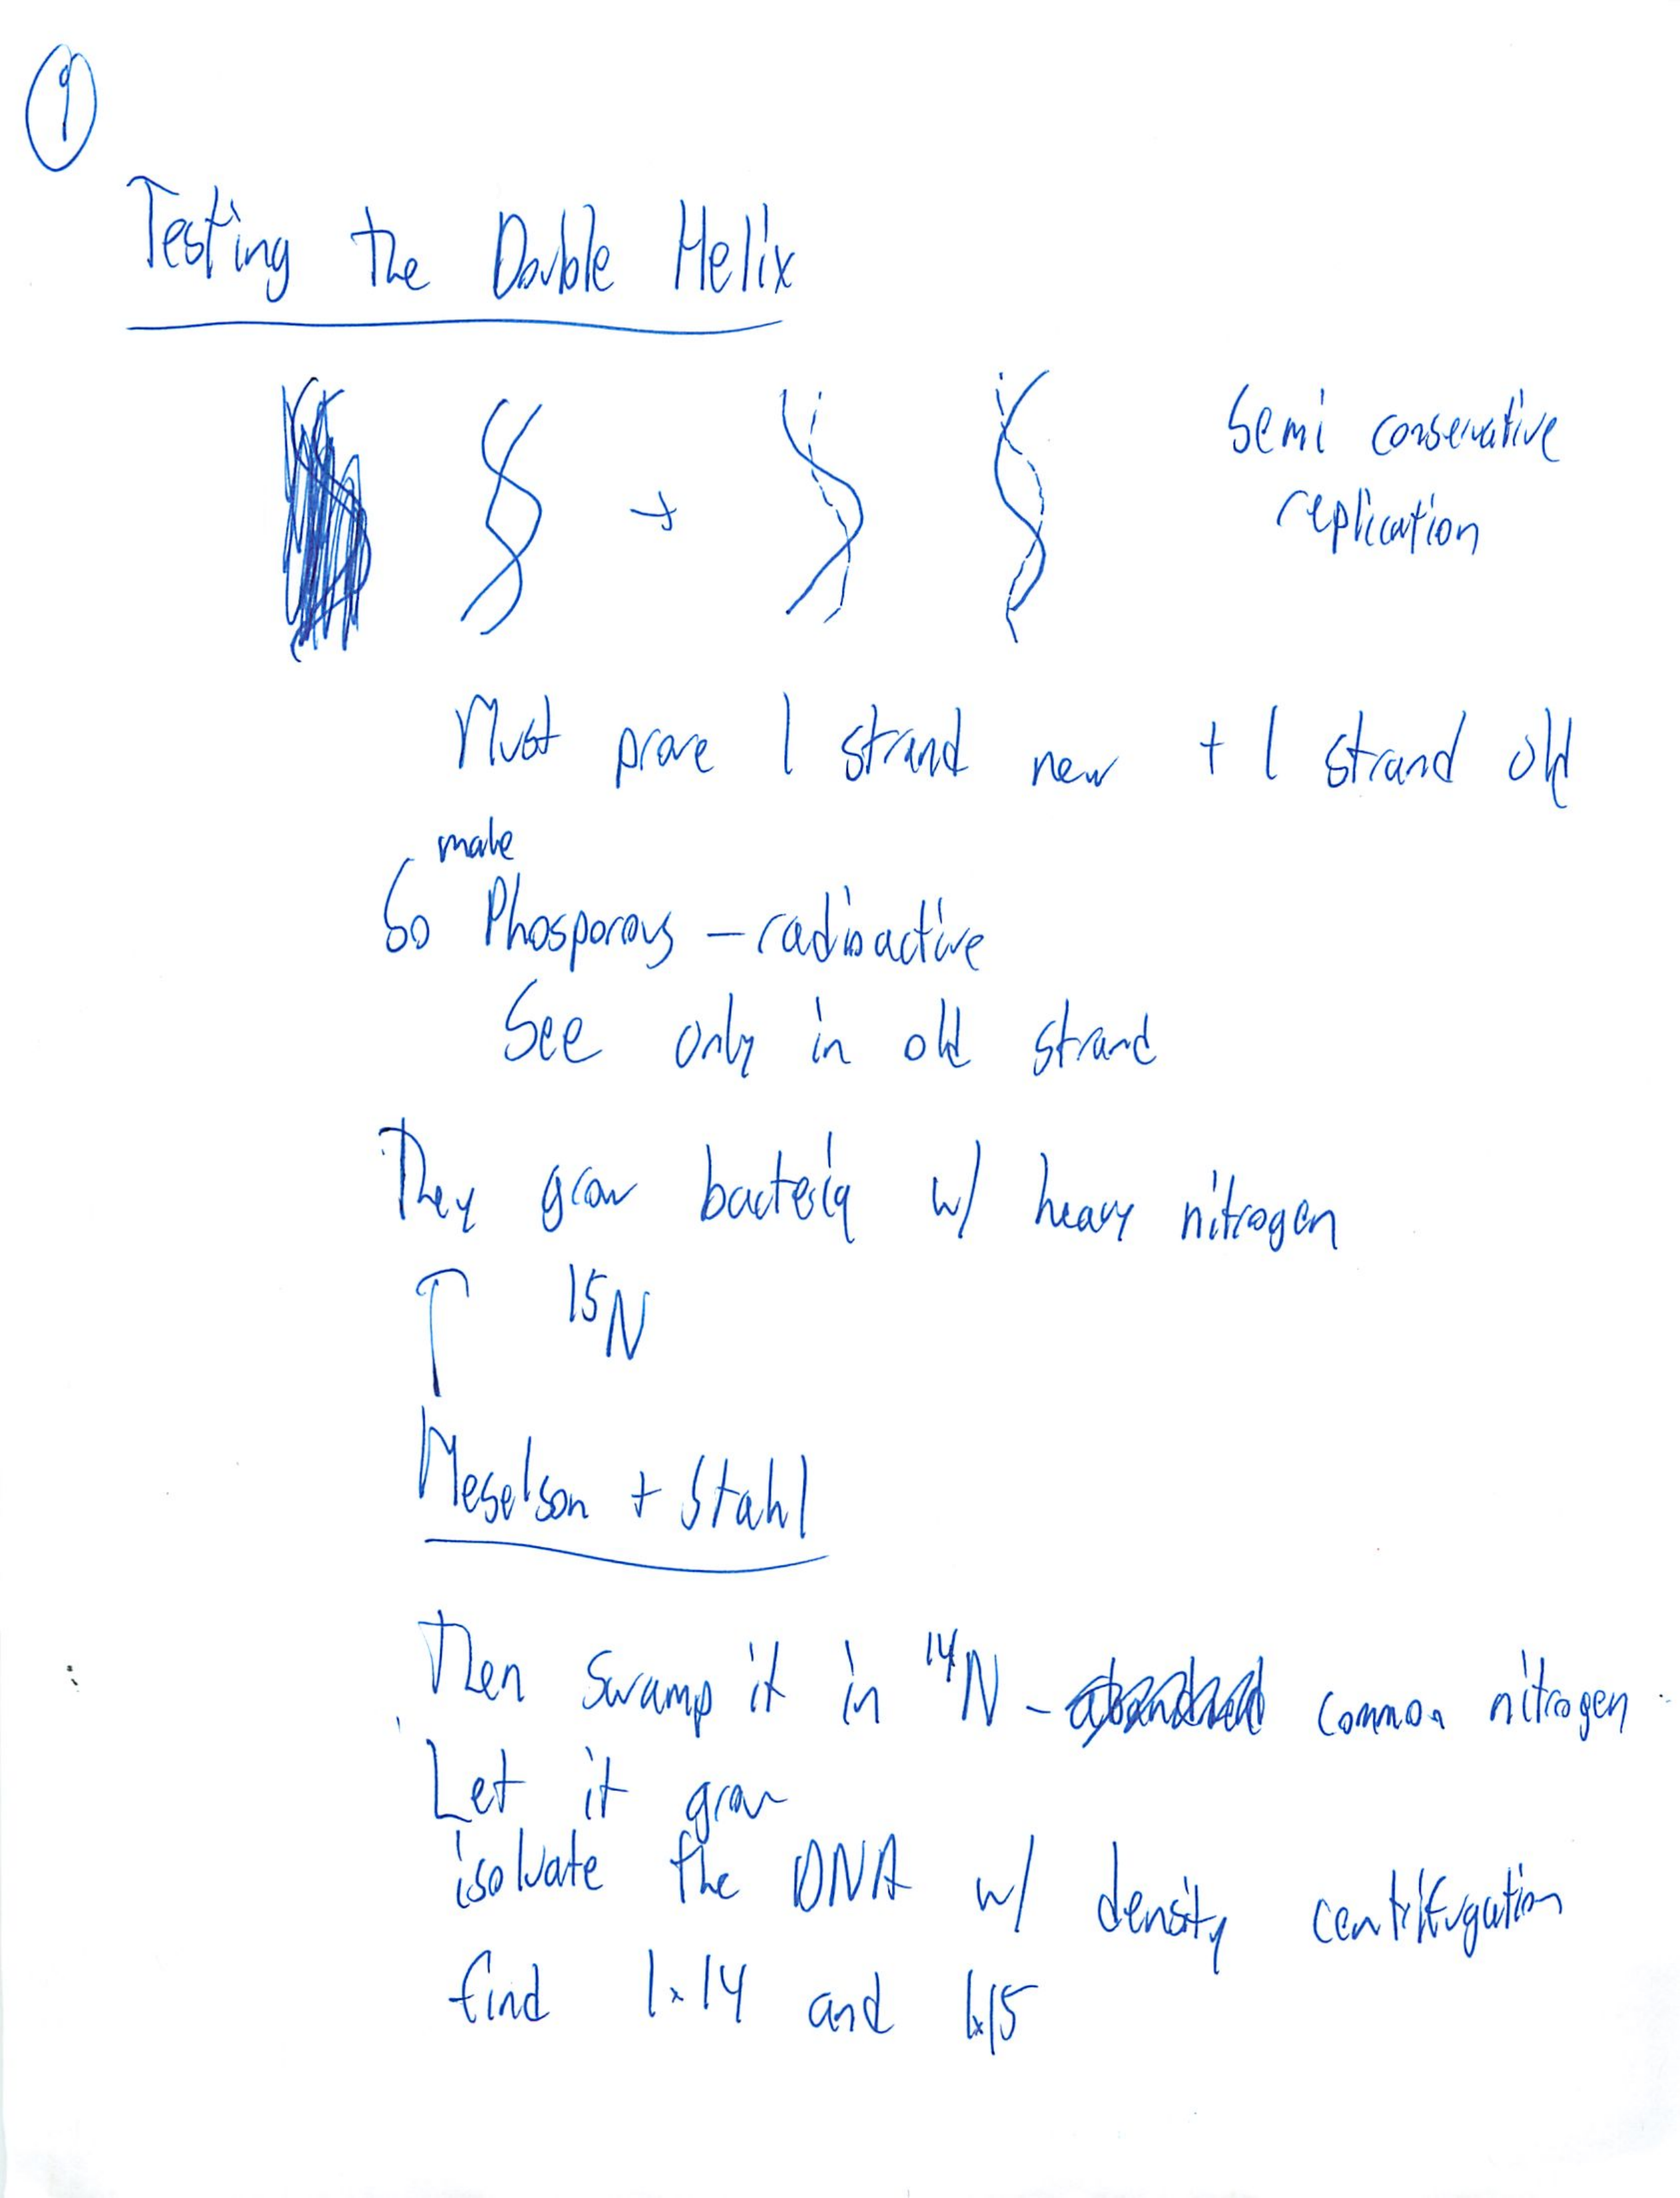 9
Testing the Double Helix
Semi conservative
replication
Must prove 1 strand new + 1 strand old
make
So Phosporous - radioactive
See only in old strand
They grow bacteria w/ heavy nitrogen
↑ 15N
Meselson + Stahl
Then swamp it in 14N - common nitrogen
Let it grow
isolvate the DNA w/ density centrifugation
find 1x14 and 1x15